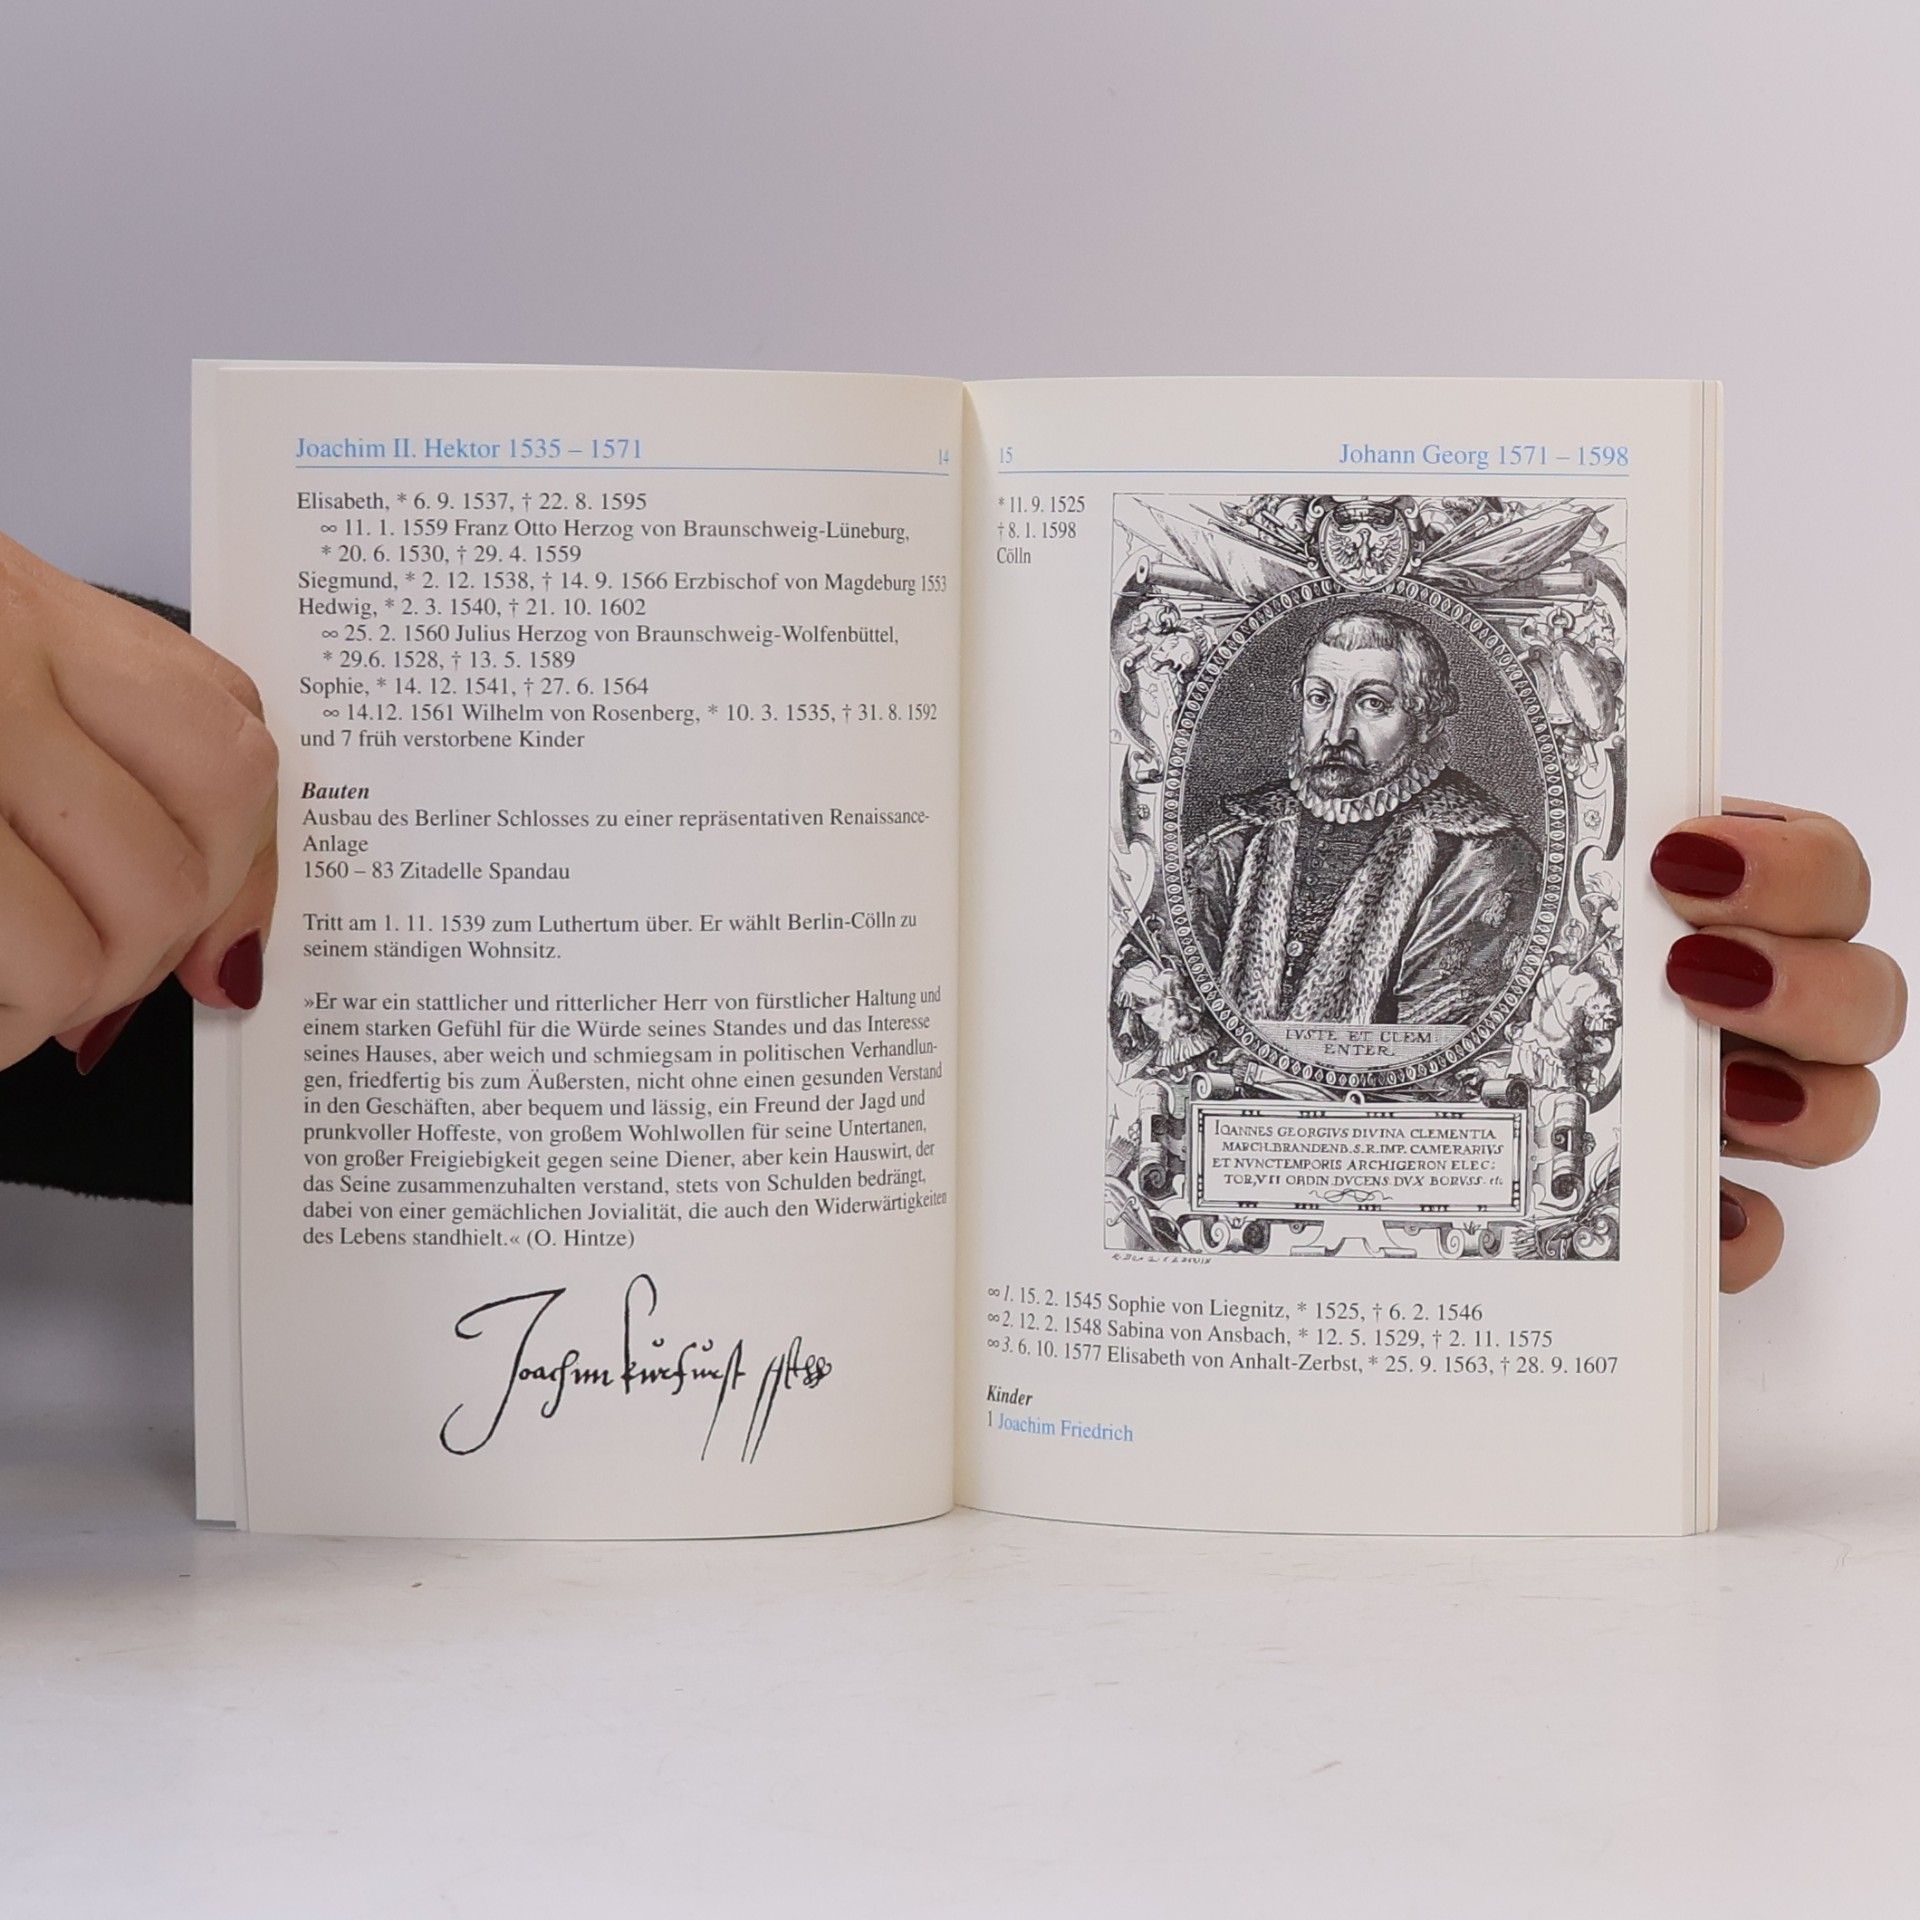 Joachim II. Hektor 1535 – 1571
14
Elisabeth, * 6. 9. 1537, † 22. 8. 1595
∞ 11. 1. 1559 Franz Otto Herzog von Braunschweig-Lüneburg,
* 20. 6. 1530, † 29. 4. 1559
Siegmund, * 2. 12. 1538, † 14. 9. 1566 Erzbischof von Magdeburg 1553
Hedwig, * 2. 3. 1540, † 21. 10. 1602
∞ 25. 2. 1560 Julius Herzog von Braunschweig-Wolfenbüttel,
* 29.6. 1528, † 13. 5. 1589
Sophie, * 14. 12. 1541, † 27. 6. 1564
∞ 14.12. 1561 Wilhelm von Rosenberg, * 10. 3. 1535, † 31. 8. 1592
und 7 früh verstorbene Kinder
Bauten
Ausbau des Berliner Schlosses zu einer repräsentativen Renaissance-
Anlage
1560 – 83 Zitadelle Spandau
Tritt am 1. 11. 1539 zum Luthertum über. Er wählt Berlin-Cölln zu
seinem ständigen Wohnsitz.
»Er war ein stattlicher und ritterlicher Herr von fürstlicher Haltung und
einem starken Gefühl für die Würde seines Standes und das Interesse
seines Hauses, aber weich und schmiegsam in politischen Verhandlun-
gen, friedfertig bis zum Äußersten, nicht ohne einen gesunden Verstand
in den Geschäften, aber bequem und lässig, ein Freund der Jagd und
prunkvoller Hoffeste, von großem Wohlwollen für seine Untertanen,
von großer Freigiebigkeit gegen seine Diener, aber kein Hauswirt, der
das Seine zusammenzuhalten verstand, stets von Schulden bedrängt,
dabei von einer gemächlichen Jovialität, die auch den Widerwärtigkeiten
des Lebens standhielt.« (O. Hintze)
Joachim kurfurst
15
Johann Georg 1571 – 1598
* 11. 9. 1525
† 8. 1. 1598
Cölln
IVSTE ET CLEM
ENTER.
IOANNES GEORGIVS DIVINA CLEMENTIA
MARCH.BRANDENB.S.R.IMP. CAMERARIVS
ET NVNCTEMPORIS ARCHIGERON ELEC:
TOR,VII ORDIN.DVCENS DVX BORVSS. etc
∞ 1. 15. 2. 1545 Sophie von Liegnitz, * 1525, † 6. 2. 1546
∞ 2. 12. 2. 1548 Sabina von Ansbach, * 12. 5. 1529, † 2. 11. 1575
∞ 3. 6. 10. 1577 Elisabeth von Anhalt-Zerbst, * 25. 9. 1563, † 28. 9. 1607
Kinder
1 Joachim Friedrich